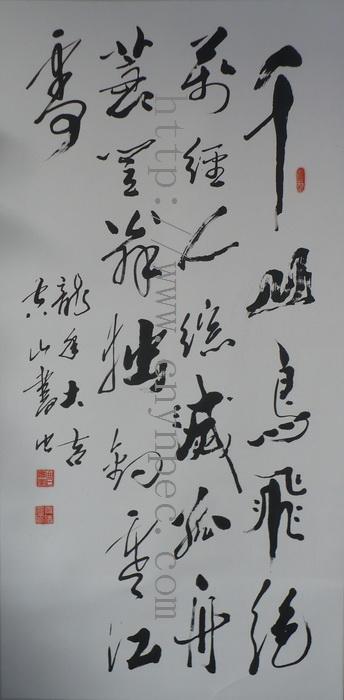 千山鳥飛絕
萬經人踪滅孤舟
蓑笠翁獨釣寒江
雪
龍年大吉
山書
http://www.cnynpec.com